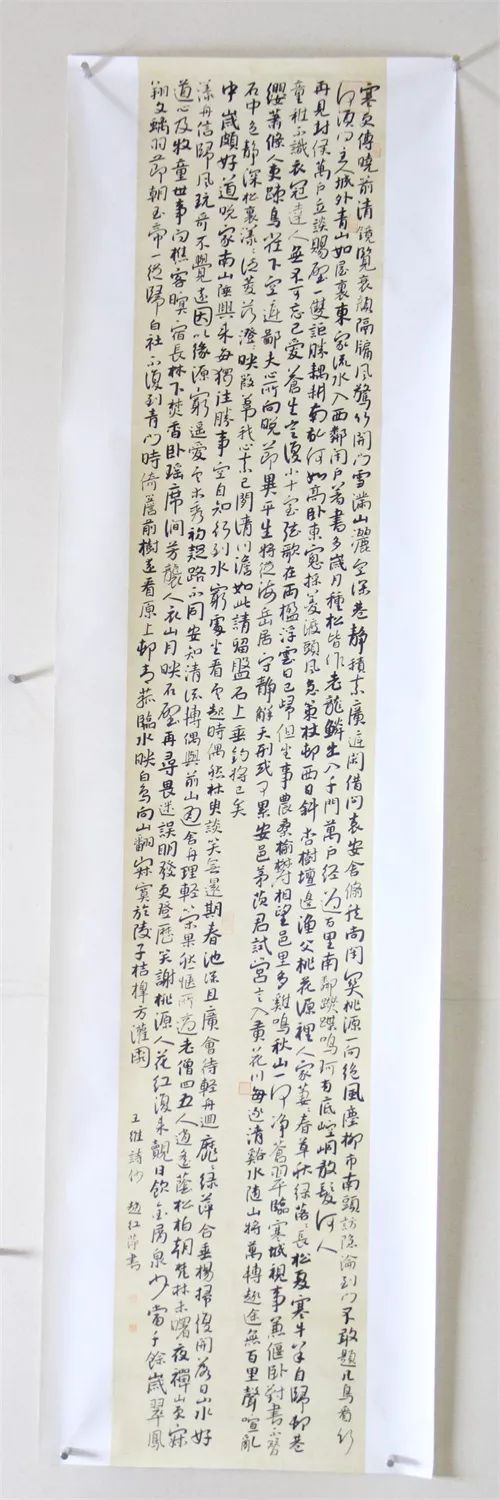 寒更傳曉箭清鏡覽衰顏隔牖風驚竹開門雪滿山灑空深巷靜積素廣庭閑借問袁安舍翛然尚閉關桃源一向絕風塵柳市南頭訪隱淪到門不敢題凡鳥看竹
何須問主人城外青山如屋裏東家流水入西鄰閉戶著書多歲月種松皆作老龍鱗出入千門萬戶經過百里南鄰蹀躞鳴珂有底崆峒散髮何人
再見封侯萬戶立談賜璧一雙詎勝耦耕南畝何如高臥東窗採菱渡頭風急策杖村西日斜杏樹壇邊漁父桃花源裡人家萋萋春草秋綠落落長松夏寒牛羊自歸村巷
童稚不識衣冠達人無不可忘己愛蒼生豈復小十室弦歌在兩楹浮雲日已歸但坐事農桑榆鬱相望邑里多雞鳴秋山一何淨蒼翠臨寒城視事兼偃臥對書不簪
纓蕭條人吏疎鳥雀下空庭鄙夫心所向晚節異平生將從海岳居守靜解天刑或可累安邑茅茨君試營言入黃花川每逐清谿水隨山將萬轉趣途無百里聲喧亂
石中色靜深松裏漾漾泛菱荇澄澄映葭葦我心素已閑清川澹如此請留盤石上垂釣將已矣
中歲頗好道晚家南山陲興來每獨往勝事空自知行到水窮處坐看雲起時偶然林叟談笑無還期春池深且廣會待輕舟迴靡靡綠萍合垂楊掃復開落日山水好
漾舟信歸風玩奇不覺遠因以緣源窮遙愛雲木秀初疑路不同安知清流轉偶與前山通舍舟理輕策果然愜所適老僧四五人逍遙蔭松柏朝梵林未曙夜禪山更寂
道心及牧童世事問樵客暝宿長林下焚香臥瑤席澗芳襲人衣山月映石壁再尋畏迷誤明發更登歷笑謝桃源人花紅復來覿日飲金屑泉少當千餘歲翠鳳
翔文螭羽節朝玉帝一從歸白社不復到青門時倚簷前樹遠看原上村青菰臨水映白鳥向山翻寂寞於陵子桔槔方灌園
王維詩抄 趙紅萍書